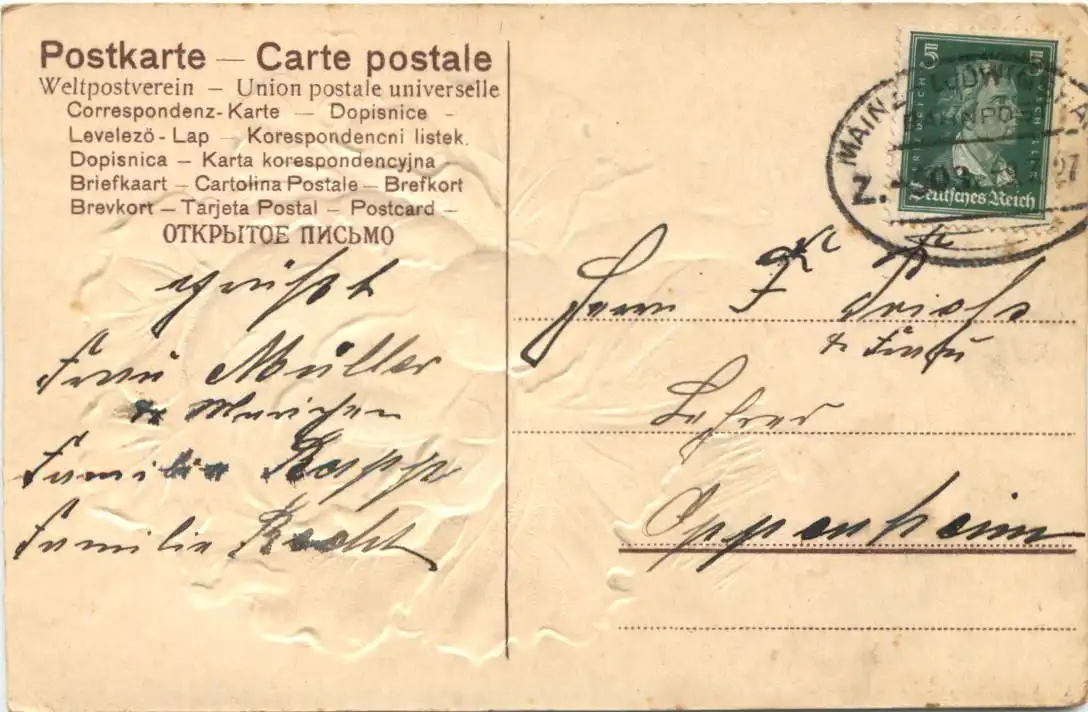 Postkarte — Carte postale
Weltpostverein — Union postale universelle
Correspondenz-Karte — Dopisnice -
Levelező - Lap — Korespondencni listek.
Dopisnica — Karta korespondencyjna
Briefkaart — Cartolina Postale — Brefkort
Brevkort — Tarjeta Postal — Postcard —
ОТКРЫТОЕ ПИСЬМО
grüßt
Frau Müller
& Mariechen
Familie Rapp
Familie Recht
5 5
DEUTSCHES REICH
Deutsches Reich
MAINZ - LUDWIGSHA
BAHNPOST
Z.
27
Herrn
& Frau
Lehrer
Oppenheim